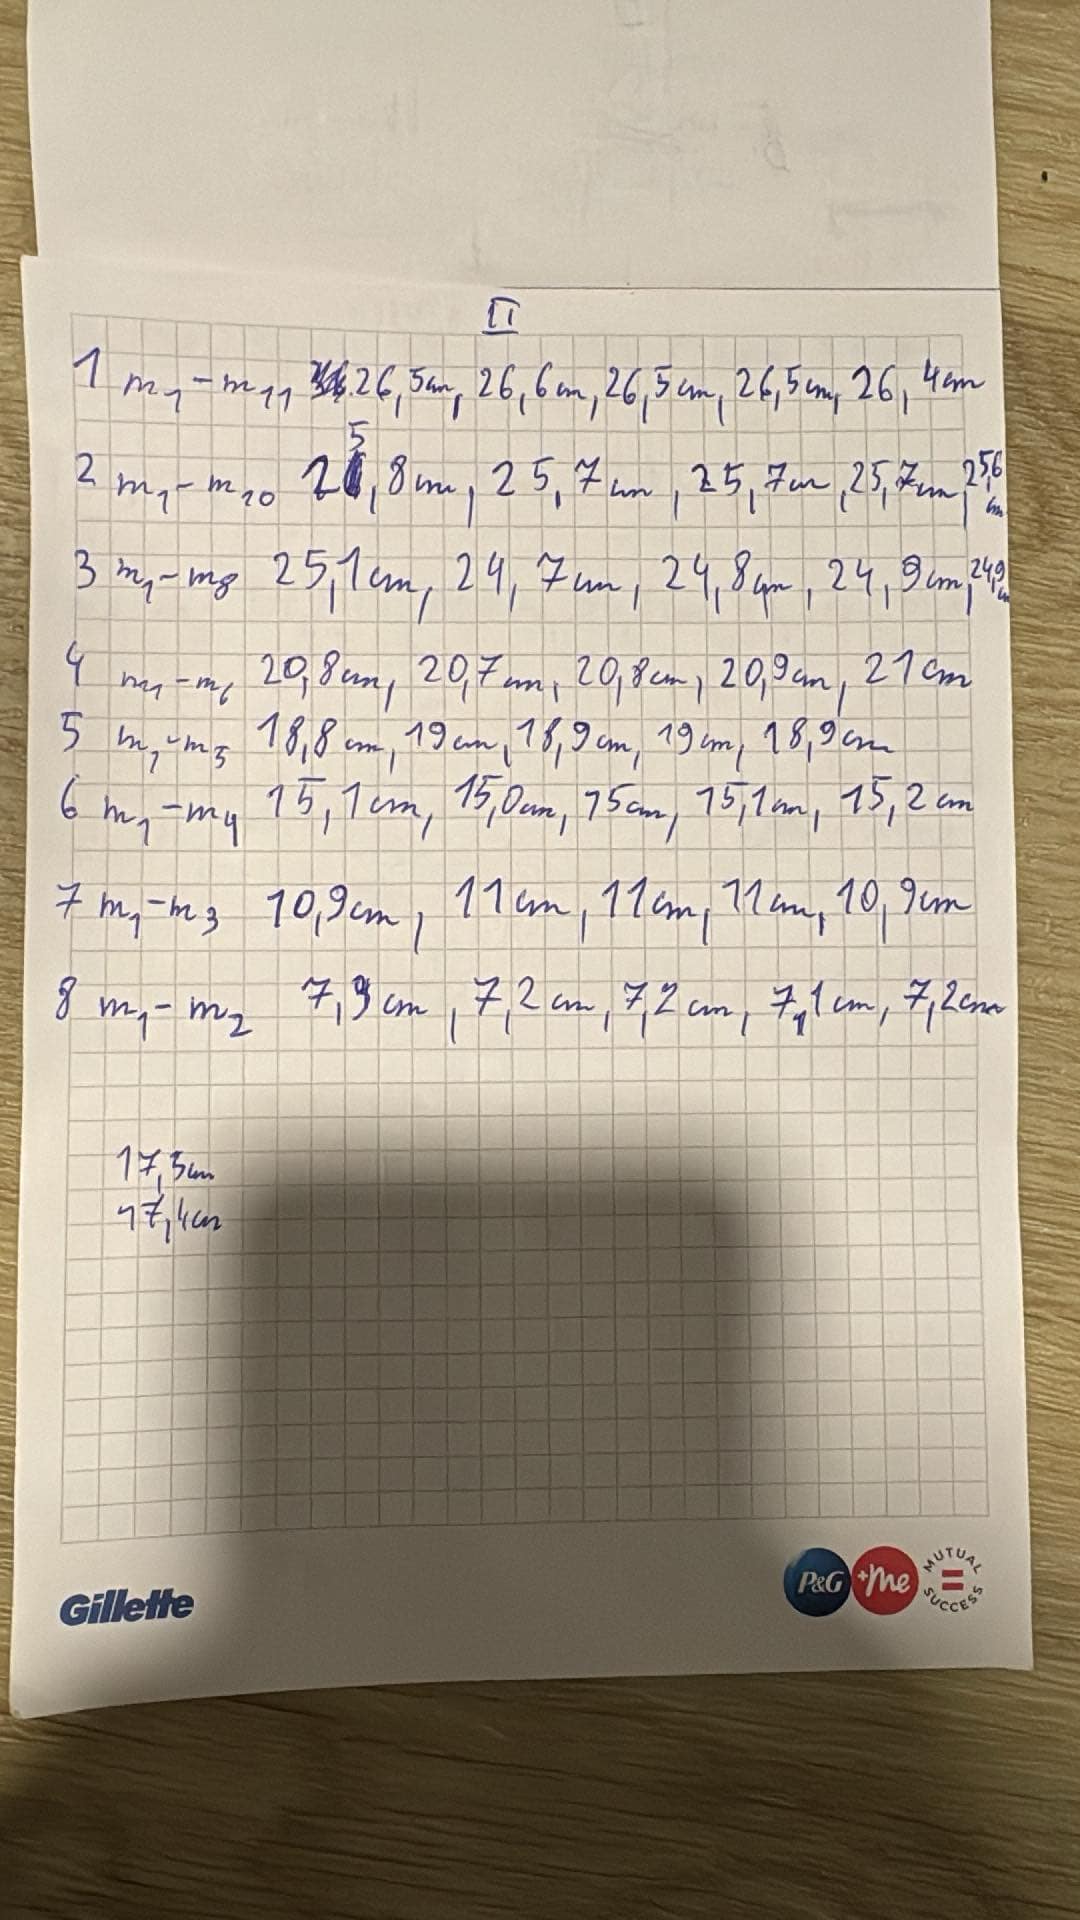 II
1 m₁-m₁₁ 26,5cm, 26,6cm, 26,5cm, 26,5cm, 26,4cm
2 m₁-m₁₀ 25,8cm, 25,7cm, 25,7cm, 25,7cm, 25,6cm
3 m₁-m₈ 25,1cm, 24,7cm, 24,8cm, 24,9cm, 24,9cm
4 m₁-m₆ 20,8cm, 20,7cm, 20,8cm, 20,9cm, 21cm
5 m₁-m₅ 18,8cm, 19cm, 18,9cm, 19cm, 18,9cm
6 m₁-m₄ 15,1cm, 15,0cm, 15cm, 15,1cm, 15,2cm
7 m₁-m₃ 10,9cm, 11cm, 11cm, 11cm, 10,9cm
8 m₁-m₂ cm, 7,2cm, 7,2cm, 7,1cm, 7,2cm
17,3cm
17,4cm
Gillette
P&G +me MUTUAL SUCCESS